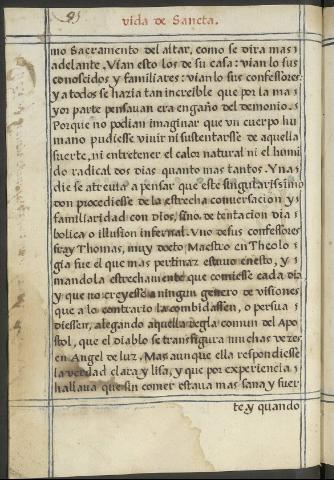 vida de Sancta.
mo Sacramento del altar, como se dira mas
adelante. Vian esto los de su casa: vian lo sus
conoscidos y familiares: vian lo sus confessores
y a todos se hazia tan increible que por la ma
yor parte pensauan era engaño del demonio.
Porque no podian imaginar que vn cuerpo hu
mano pudiesse viuir ni sustentarsse de aquella
suerte, ni entretener el calor natural ni el humi
do radical dos dias quanto mas tantos. Y na
die se atreuia a pensar que este singularissimo
don procediesse de la estrecha conuersacion y
familiaridad con dios, sino de tentacion dia
bolica o illusion infernal. Vno de sus confessores
fray Thomas, muy docto, Maestro en Theolo
gia fue el que mas pertinaz estuuo en esto, y
mandola estrechamente que comiesse cada dia
y que no creyesse a ningun genero de visiones
que a lo contrario la combidassen, o persua
diessen, alegando aquella regla comun del Apo
stol, que el diablo se transfigura muchas vezes
en Angel de luz. Mas aunque ella respondiesse
la verdad clara y lisa, y que por experiencia
hallaua que sin comer estaua mas sana y fuer
te, y quando